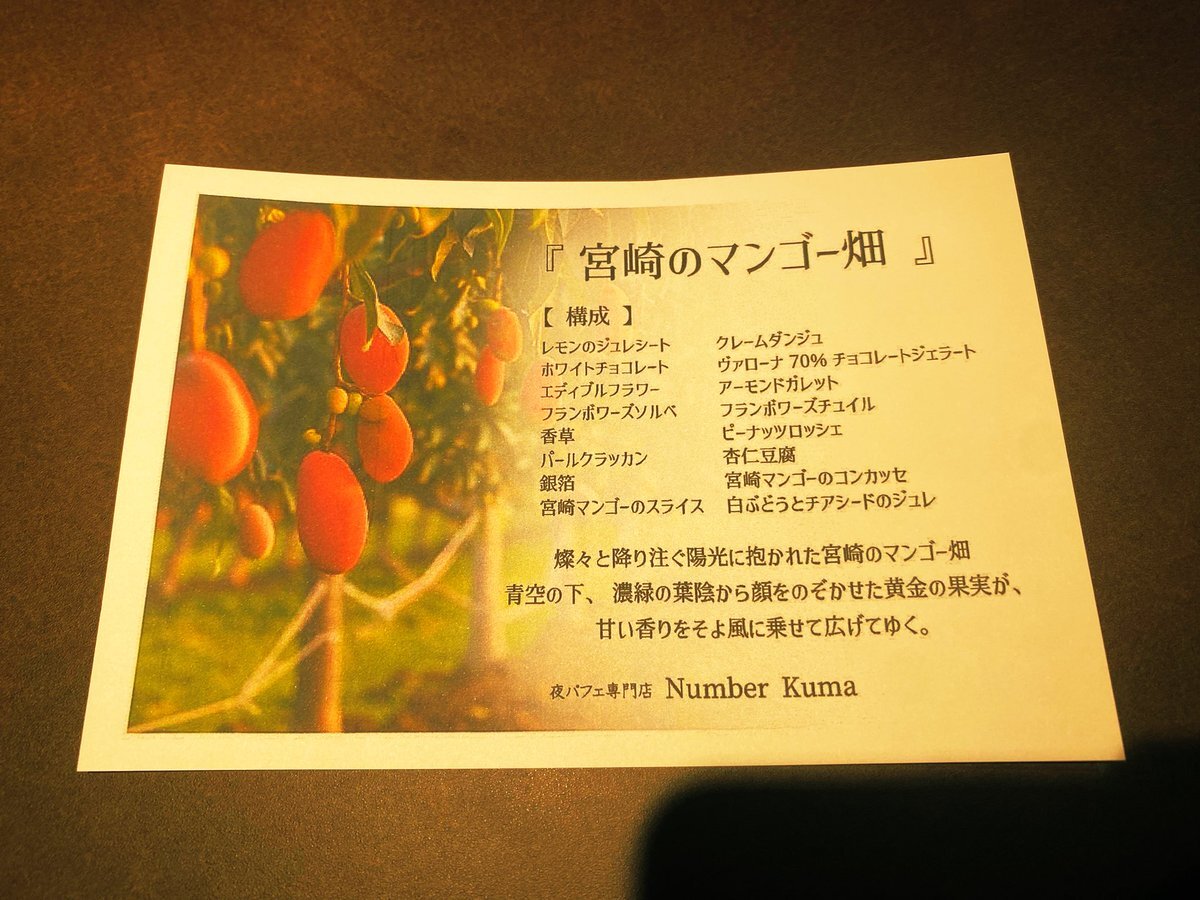 『 宮崎のマンゴー畑 』
【 構成 】
レモンのジュレシート
ホワイトチョコレート
エディブルフラワー
フランボワーズソルベ
香草
パールクラッカン
銀箔
宮崎マンゴーのスライス
クレームダンジュ
ヴァローナ 70% チョコレートジェラート
アーモンドガレット
フランボワーズチュイル
ピーナッツロッシェ
杏仁豆腐
宮崎マンゴーのコンカッセ
白ぶどうとチアシードのジュレ
燦々と降り注ぐ陽光に抱かれた宮崎のマンゴー畑
青空の下、 濃緑の葉陰から顔をのぞかせた黄金の果実が、
甘い香りをそよ風に乗せて広げてゆく。
夜パフェ専門店 Number Kuma